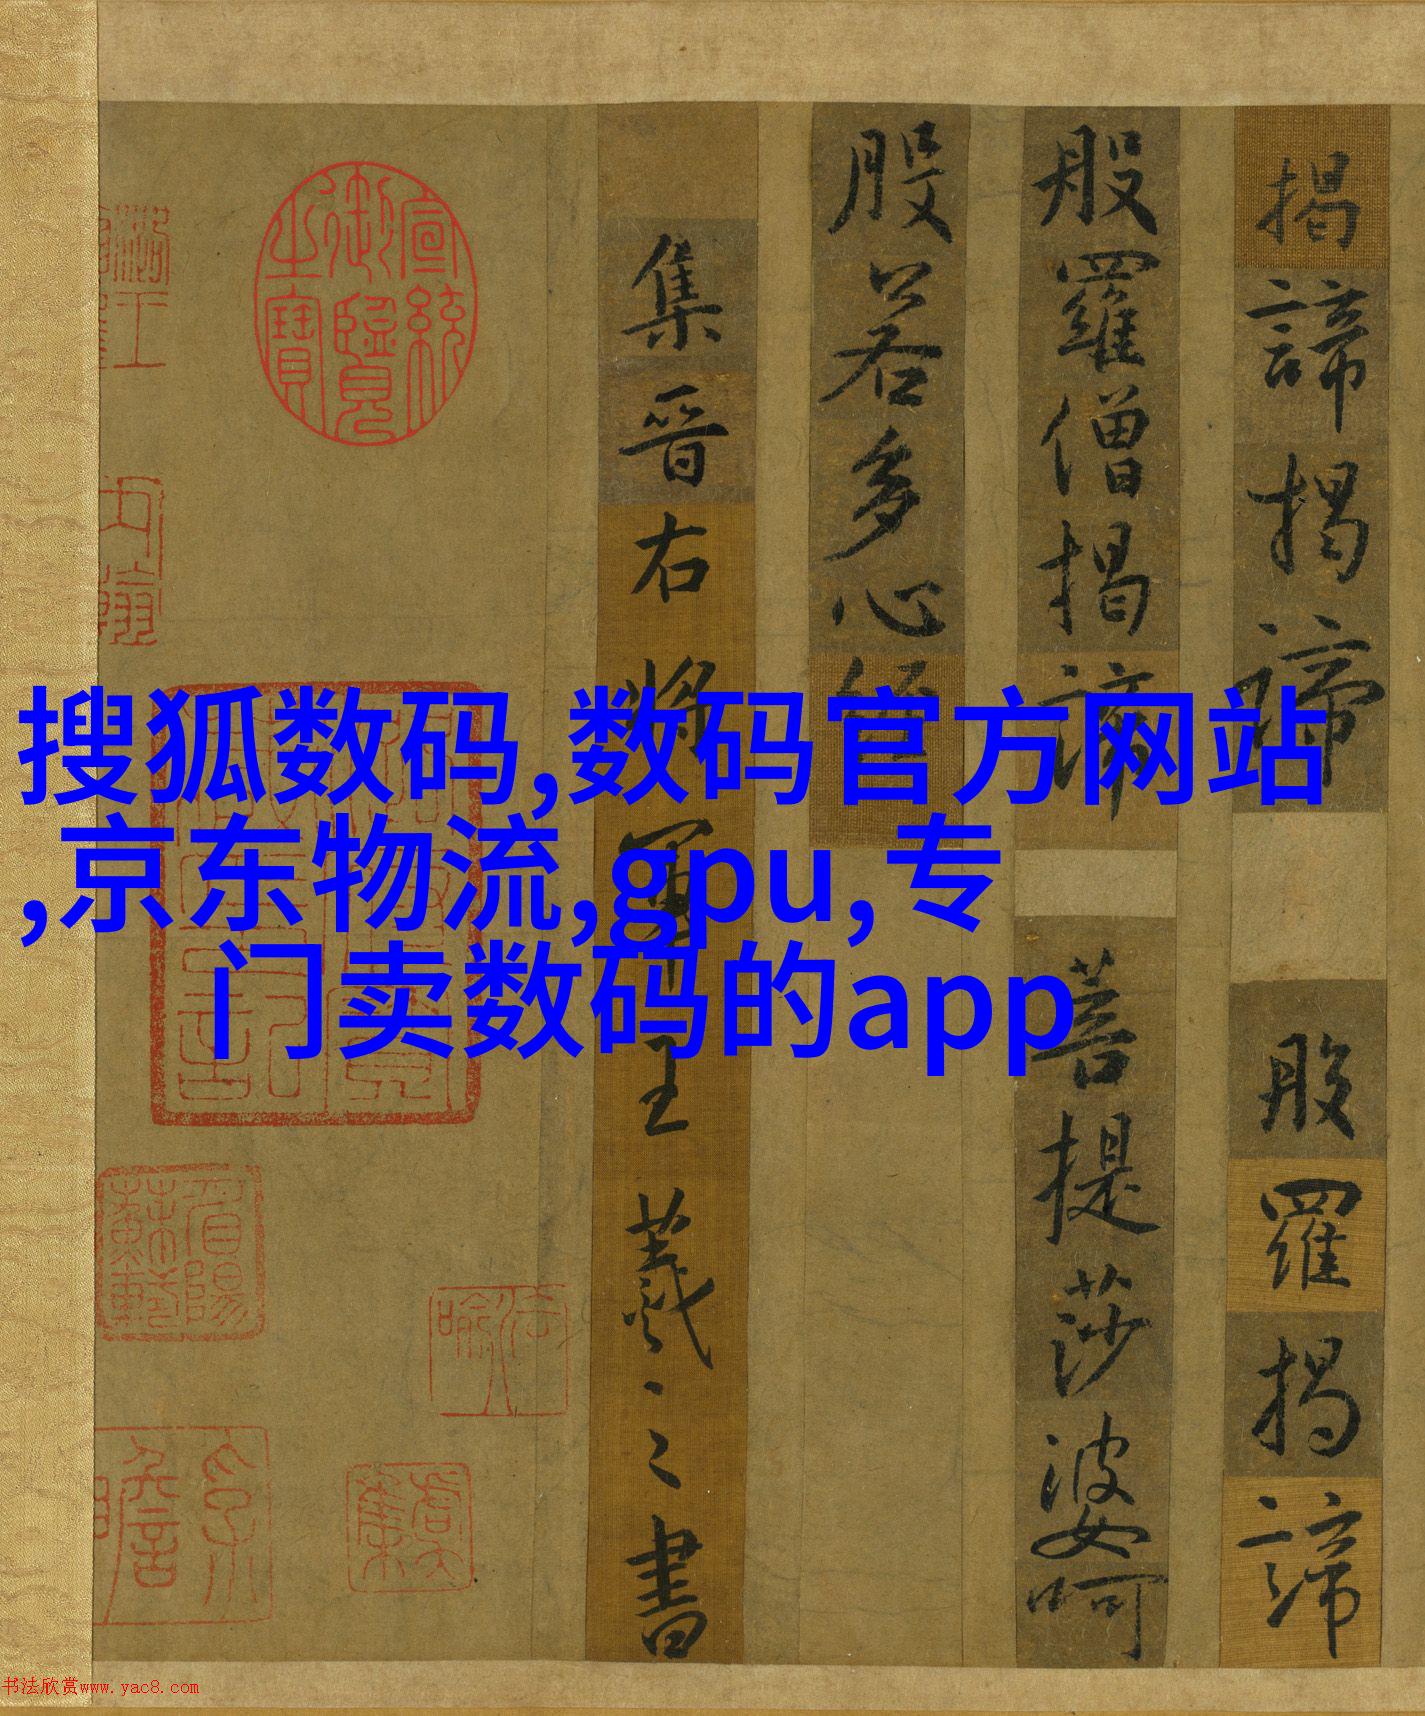 搜狐数码,数码官方网站
,京东物流,gpu,专
门卖数码的app
揭諦揭諦
般羅揭諦
般羅僧揭諦
菩提莎婆呵
般若多心經
集晉右將軍王羲之書
宣統御覽之寶
书法欣赏www.yac8.com